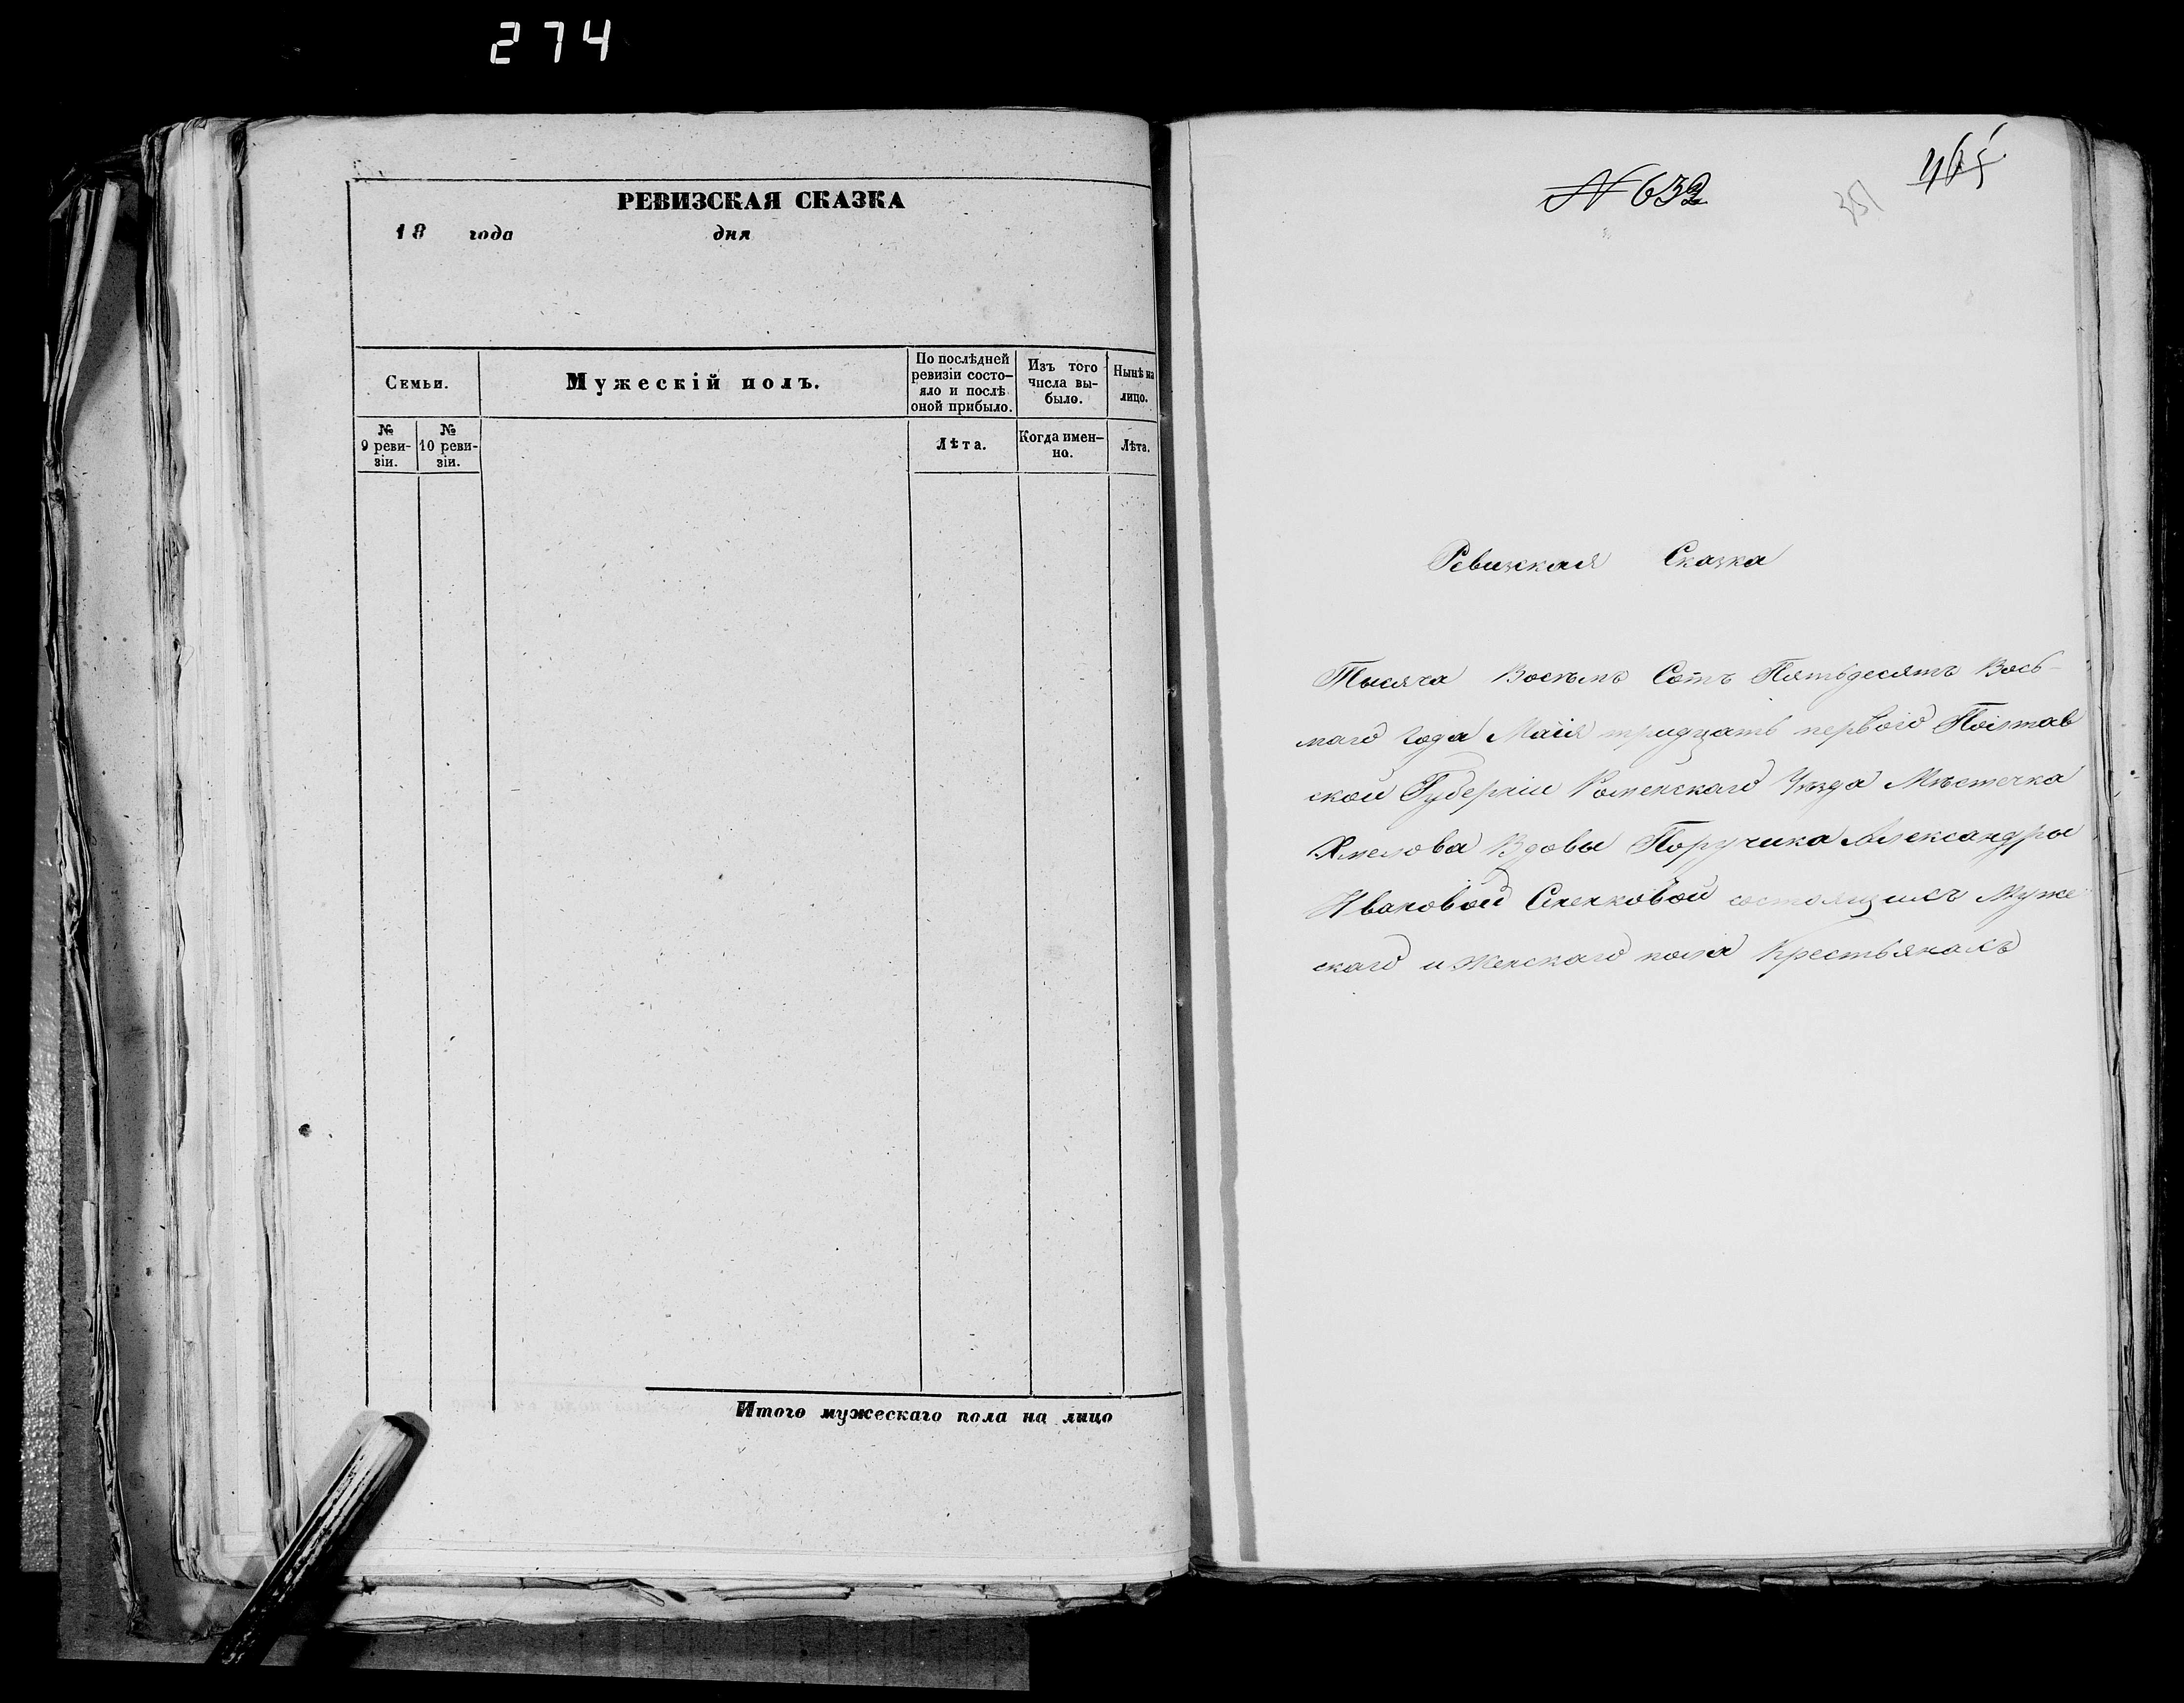 274
РЕВИЗСКАЯ СКАЗКА
18 года дня
Семьи.
Мужескій полъ.
По послѣдней
ревизіи состо-
яло и послѣ
оной прибыло.
Изъ того
числа вы-
было.
Нынѣ на
лицо.
№
9 реви-
зіи.
№
10 реви-
зіи.
Лѣта.
Когда имен-
но.
Лѣта.
Итого мужескаго пола на лицо
№ 632
351
465
Ревизская Сказка
Тысяча Восемь Сотъ Пятьдесятъ Вось-
маго Года Маія тридцать первого Полтав
ской Губерніи Роменскаго Уѣзда Мѣстечка
Хмелова Вдовы Поручика Александры
Ивановой состоящихъ Муже
скаго и Женскаго пола Крестьянахъ